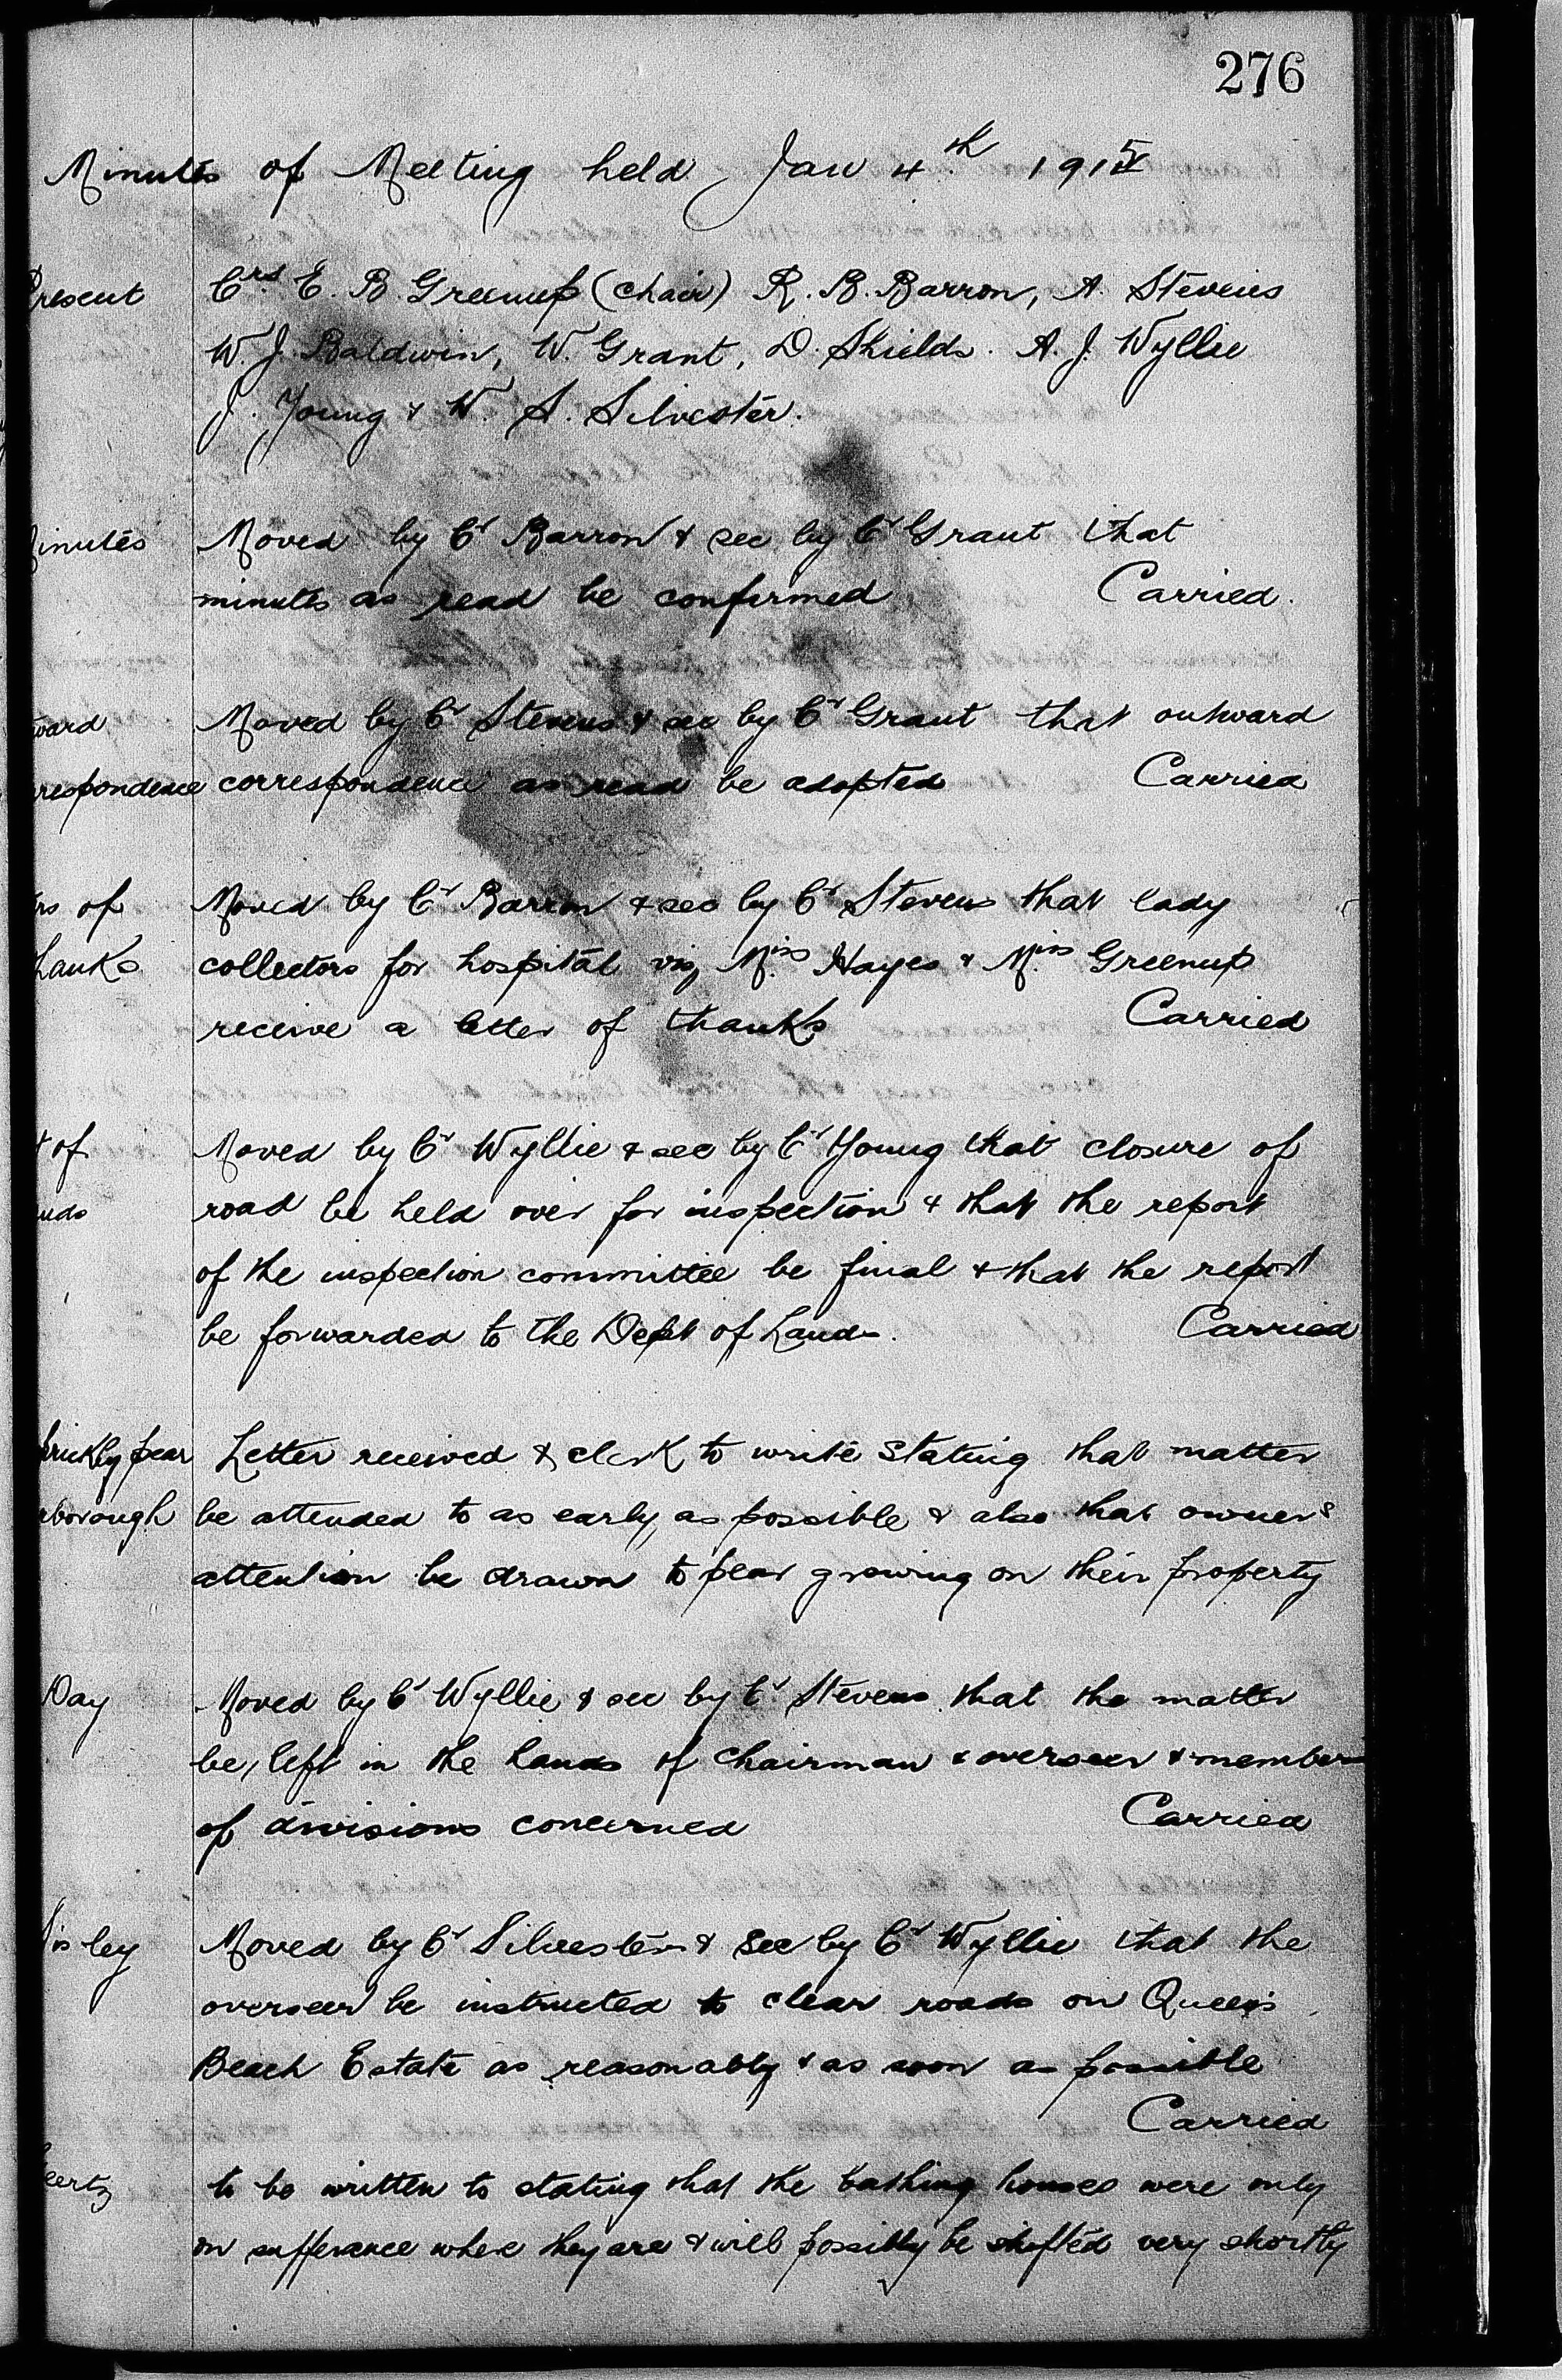 276
Minutes of Meeting held Jan 4th 1915
Present Crs. E. B. Greenup (Chair) R. B. Barron, A. Stevens
W. J. Baldwin, W. Grant, D. Shields. A. J. Wyllie
J. Young & W. S. Silvester.
inutes Moved by Cr Barron & sec by Cr Grant that
minutes as read be confirmed Carried.
ward Moved by Cr Stevens & sec by Cr Grant that outward
respondence correspondence as read be adopted Carried
rs of Moved by Cr Barron & sec by Cr Stevens that lady
hanks collectors for hospital viz Miss Hayes & Miss Greenup
receive a letter of thanks Carried
t of Moved by Cr Wyllie & sec by Cr Young that closure of
nds road be held over for inspection & that the report
of the inspection committee be final & that the report
be forwarded to the Dept of Lands. Carried
prickly pear Letter received & clerk to write stating that matter
rborough be attended to as early as possible & also that owners
attention be drawn to pear growing on their property
Day Moved by Cr Wyllie & sec by Cr Stevens that the matter
be left in the hands of Chairman & overseer & members
of divisions concerned Carried
isley Moved by Cr Silvester & sec by Cr Wyllie that the
overseer be instructed to clear roads on Queen's
Beach Estate as reasonably & as soon as possible
Carried
eertz to be written to stating that the bathing houses were only
on sufferance where they are & will possibly be shifted very shortly